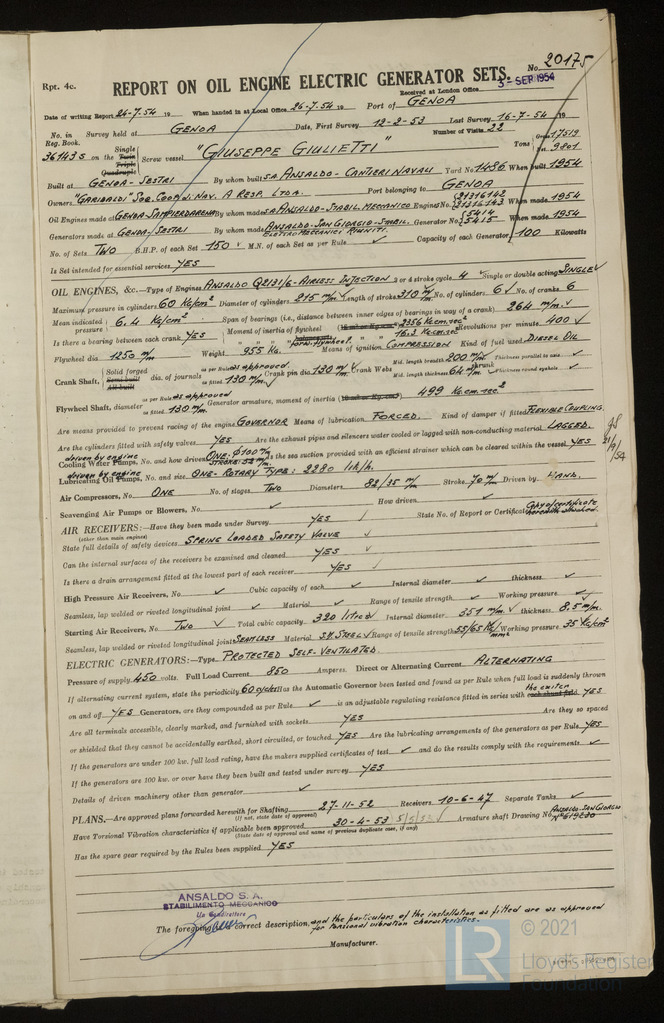 Rpt. 4c.
No. 20175
REPORT ON OIL ENGINE ELECTRIC GENERATOR SETS.
3 - SEP 1954
Received at London Office
Date of writing Report 26-7-54 19 When handed in at Local Office 26-7-54 19 Port of GENOA
No. in Reg. Book. Survey held at GENOA Date, First Survey 12-2-53 Last Survey 16-7-54 19
Number of Visits 22
36143 S on the Single Twin Triple Quadruple Screw vessel "GIUSEPPE GIULIETTI" Tons Gross 17519 Net 9801
Built at GENOA-SESTRI By whom built S.A. ANSALDO-CANTIERI NAVALI Yard No. 1486 When built 1954
Owners "GARIBALDI" SOC. COOP. DI NAV. A RESP. LTDA. Port belonging to GENOA
Oil Engines made at GENOA-SAMPIERDARENA By whom made S.A. ANSALDO-STABIL. MECCANICO Engine Nos. 21316142 21316143 When made 1954
Generators made at GENOA-SESTRI By whom made ANSALDO-SAN GIORGIO-STABIL. ELETTRO MECCANICI RIUNITI. Generator Nos. 5414 5415 When made 1954
No. of Sets TWO B.H.P. of each Set 150 M.N. of each Set as per Rule ✓ Capacity of each Generator 100 Kilowatts
Is Set intended for essential services YES
OIL ENGINES, &c.—Type of Engines ANSALDO Q2131/6-AIRLESS INJECTION 2 or 4 stroke cycle 4 Single or double acting SINGLE
Maximum pressure in cylinders 60 Kg/cm² Diameter of cylinders 215 m/m Length of stroke 310 m/m No. of cylinders 6 No. of cranks 6
Mean indicated pressure 6.4 Kg/cm² Span of bearings (i.e., distance between inner edges of bearings in way of a crank) 264 m/m.
Is there a bearing between each crank YES Moment of inertia of flywheel 2356 Kg.cm.sec² Revolutions per minute 400
" " " forw. flywheel 16.3 Kg.cm.sec²
Flywheel dia. 1250 m/m Weight 955 Kg. Means of ignition COMPRESSION Kind of fuel used DIESEL OIL
Crank Shaft, Solid forged Semi built All built dia. of journals as per Rule as approved as fitted 130 m/m Crank pin dia. 130 m/m Crank Webs Mid. length breadth 200 m/m Thickness parallel to axis ✓
Mid. length thickness 64 m/m Thickness round eyeholes ✓
Flywheel Shaft, diameter as per Rule as approved as fitted 130 m/m. Generator armature, moment of inertia 499 Kg.cm.sec²
Are means provided to prevent racing of the engine GOVERNOR Means of lubrication FORCED. Kind of damper if fitted FLEXIBLE COUPLING.
Are the cylinders fitted with safety valves YES Are the exhaust pipes and silencers water cooled or lagged with non-conducting material LAGGED.
driven by engine
Cooling Water Pumps, No. and how driven ONE: Ø 100 m/m STROKE: 52 m/m. Is the sea suction provided with an efficient strainer which can be cleared within the vessel YES
driven by engine
Lubricating Oil Pumps, No. and size ONE-ROTARY TYPE: 2280 lit/h.
21/9/54
Air Compressors, No. ONE No. of stages TWO Diameters 82/35 m/m Stroke 70 m/m Driven by HAND.
Scavenging Air Pumps or Blowers, No. ✓ How driven ✓
AIR RECEIVERS:—Have they been made under Survey YES State No. of Report or Certificate Copy of certificate herewith attached.
(other than main engines)
State full details of safety devices SPRING LOADED SAFETY VALVE
Can the internal surfaces of the receivers be examined and cleaned YES
Is there a drain arrangement fitted at the lowest part of each receiver YES
High Pressure Air Receivers, No. ✓ Cubic capacity of each ✓ Internal diameter ✓ thickness ✓
Seamless, lap welded or riveted longitudinal joint ✓ Material ✓ Range of tensile strength ✓ Working pressure ✓
Starting Air Receivers, No. TWO Total cubic capacity 320 litres Internal diameter 351 m/m thickness 8.5 m/m.
Seamless, lap welded or riveted longitudinal joint SEAMLESS Material S.M. STEEL Range of tensile strength 55/65 Kg/mm² Working pressure 35 Kg/cm²
ELECTRIC GENERATORS:—Type PROTECTED SELF-VENTILATED.
Pressure of supply 450 volts. Full Load Current 850 Amperes. Direct or Alternating Current ALTERNATING
If alternating current system, state the periodicity 60 cycles Has the Automatic Governor been tested and found as per Rule when full load is suddenly thrown
on and off YES Generators, are they compounded as per Rule ✓ is an adjustable regulating resistance fitted in series with the exiter each shunt field YES
Are all terminals accessible, clearly marked, and furnished with sockets YES Are they so spaced
or shielded that they cannot be accidentally earthed, short circuited, or touched YES Are the lubricating arrangements of the generators as per Rule YES
If the generators are under 100 kw. full load rating, have the makers supplied certificates of test ✓ and do the results comply with the requirements ✓
If the generators are 100 kw. or over have they been built and tested under survey YES
Details of driven machinery other than generator ✓
PLANS.—Are approved plans forwarded herewith for Shafting 27-11-52 Receivers 10-6-47 Separate Tanks ✓
(If not, state date of approval)
Have Torsional Vibration characteristics if applicable been approved 30-4-53 Armature shaft Drawing No. ANSALDO-SAN GIORGIO N° 619230
(State date of approval and name of previous duplicate case, if any)
Has the spare gear required by the Rules been supplied YES
ANSALDO S. A.
STABILIMENTO MECCANICO
Un Condirettore
The foregoing is a correct description, and the particulars of the installation as fitted are as approved
for torsional vibration characteristics.
Manufacturer.
LR © 2021
Lloyd's Register
Foundation